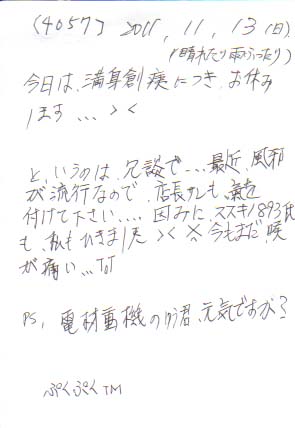 (4057) 2011, 11, 13 (日)
(晴れたり雨ふったり)
今日は、満身創痍につき、お休み
します…><
と、いうのは、冗談で…最近、風邪
が流行なので、店長さんも、氣を
付けて下さい…。因みに、ススキノ893氏
も、私もひきました><※、今もまだ、咳
が痛い…ToT
PS, 電材重機の君、元気ですか?
ぷくぷくTM